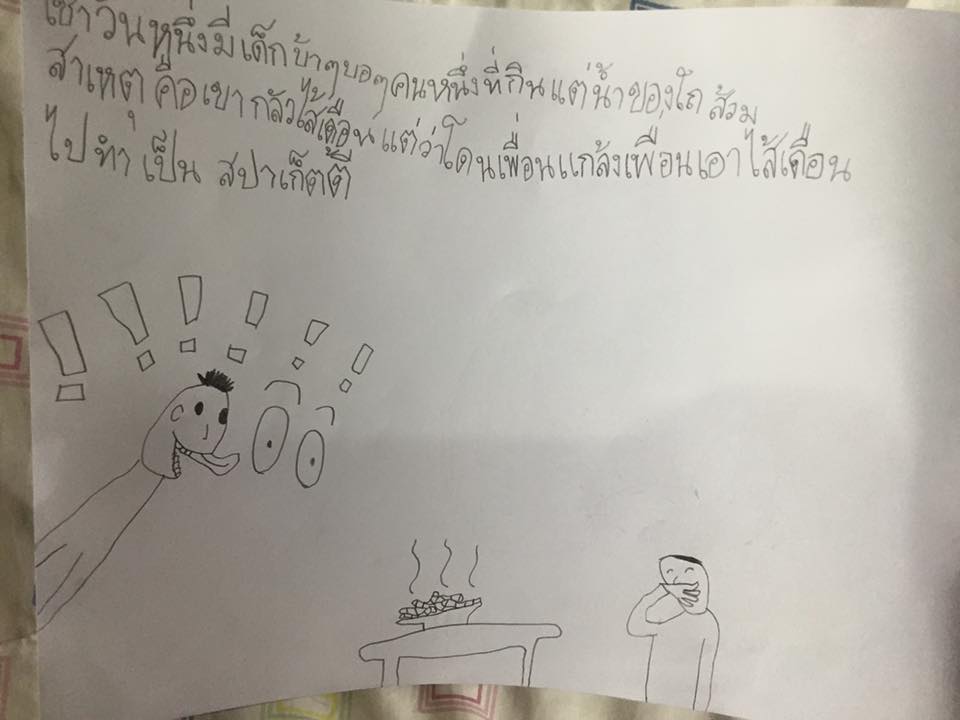 เช้าวันหนึ่งมีเด็กบ้าๆบอๆคนหนึ่งที่กินแต่น้ำของโถส้วม
สาเหตุคือเขากลัวไส้เดือนแต่ว่าโดนเพื่อนแกล้งเพื่อนเอาไส้เดือน
ไปทำเป็น สปาเก็ตตี้
! ! ! ! ! !